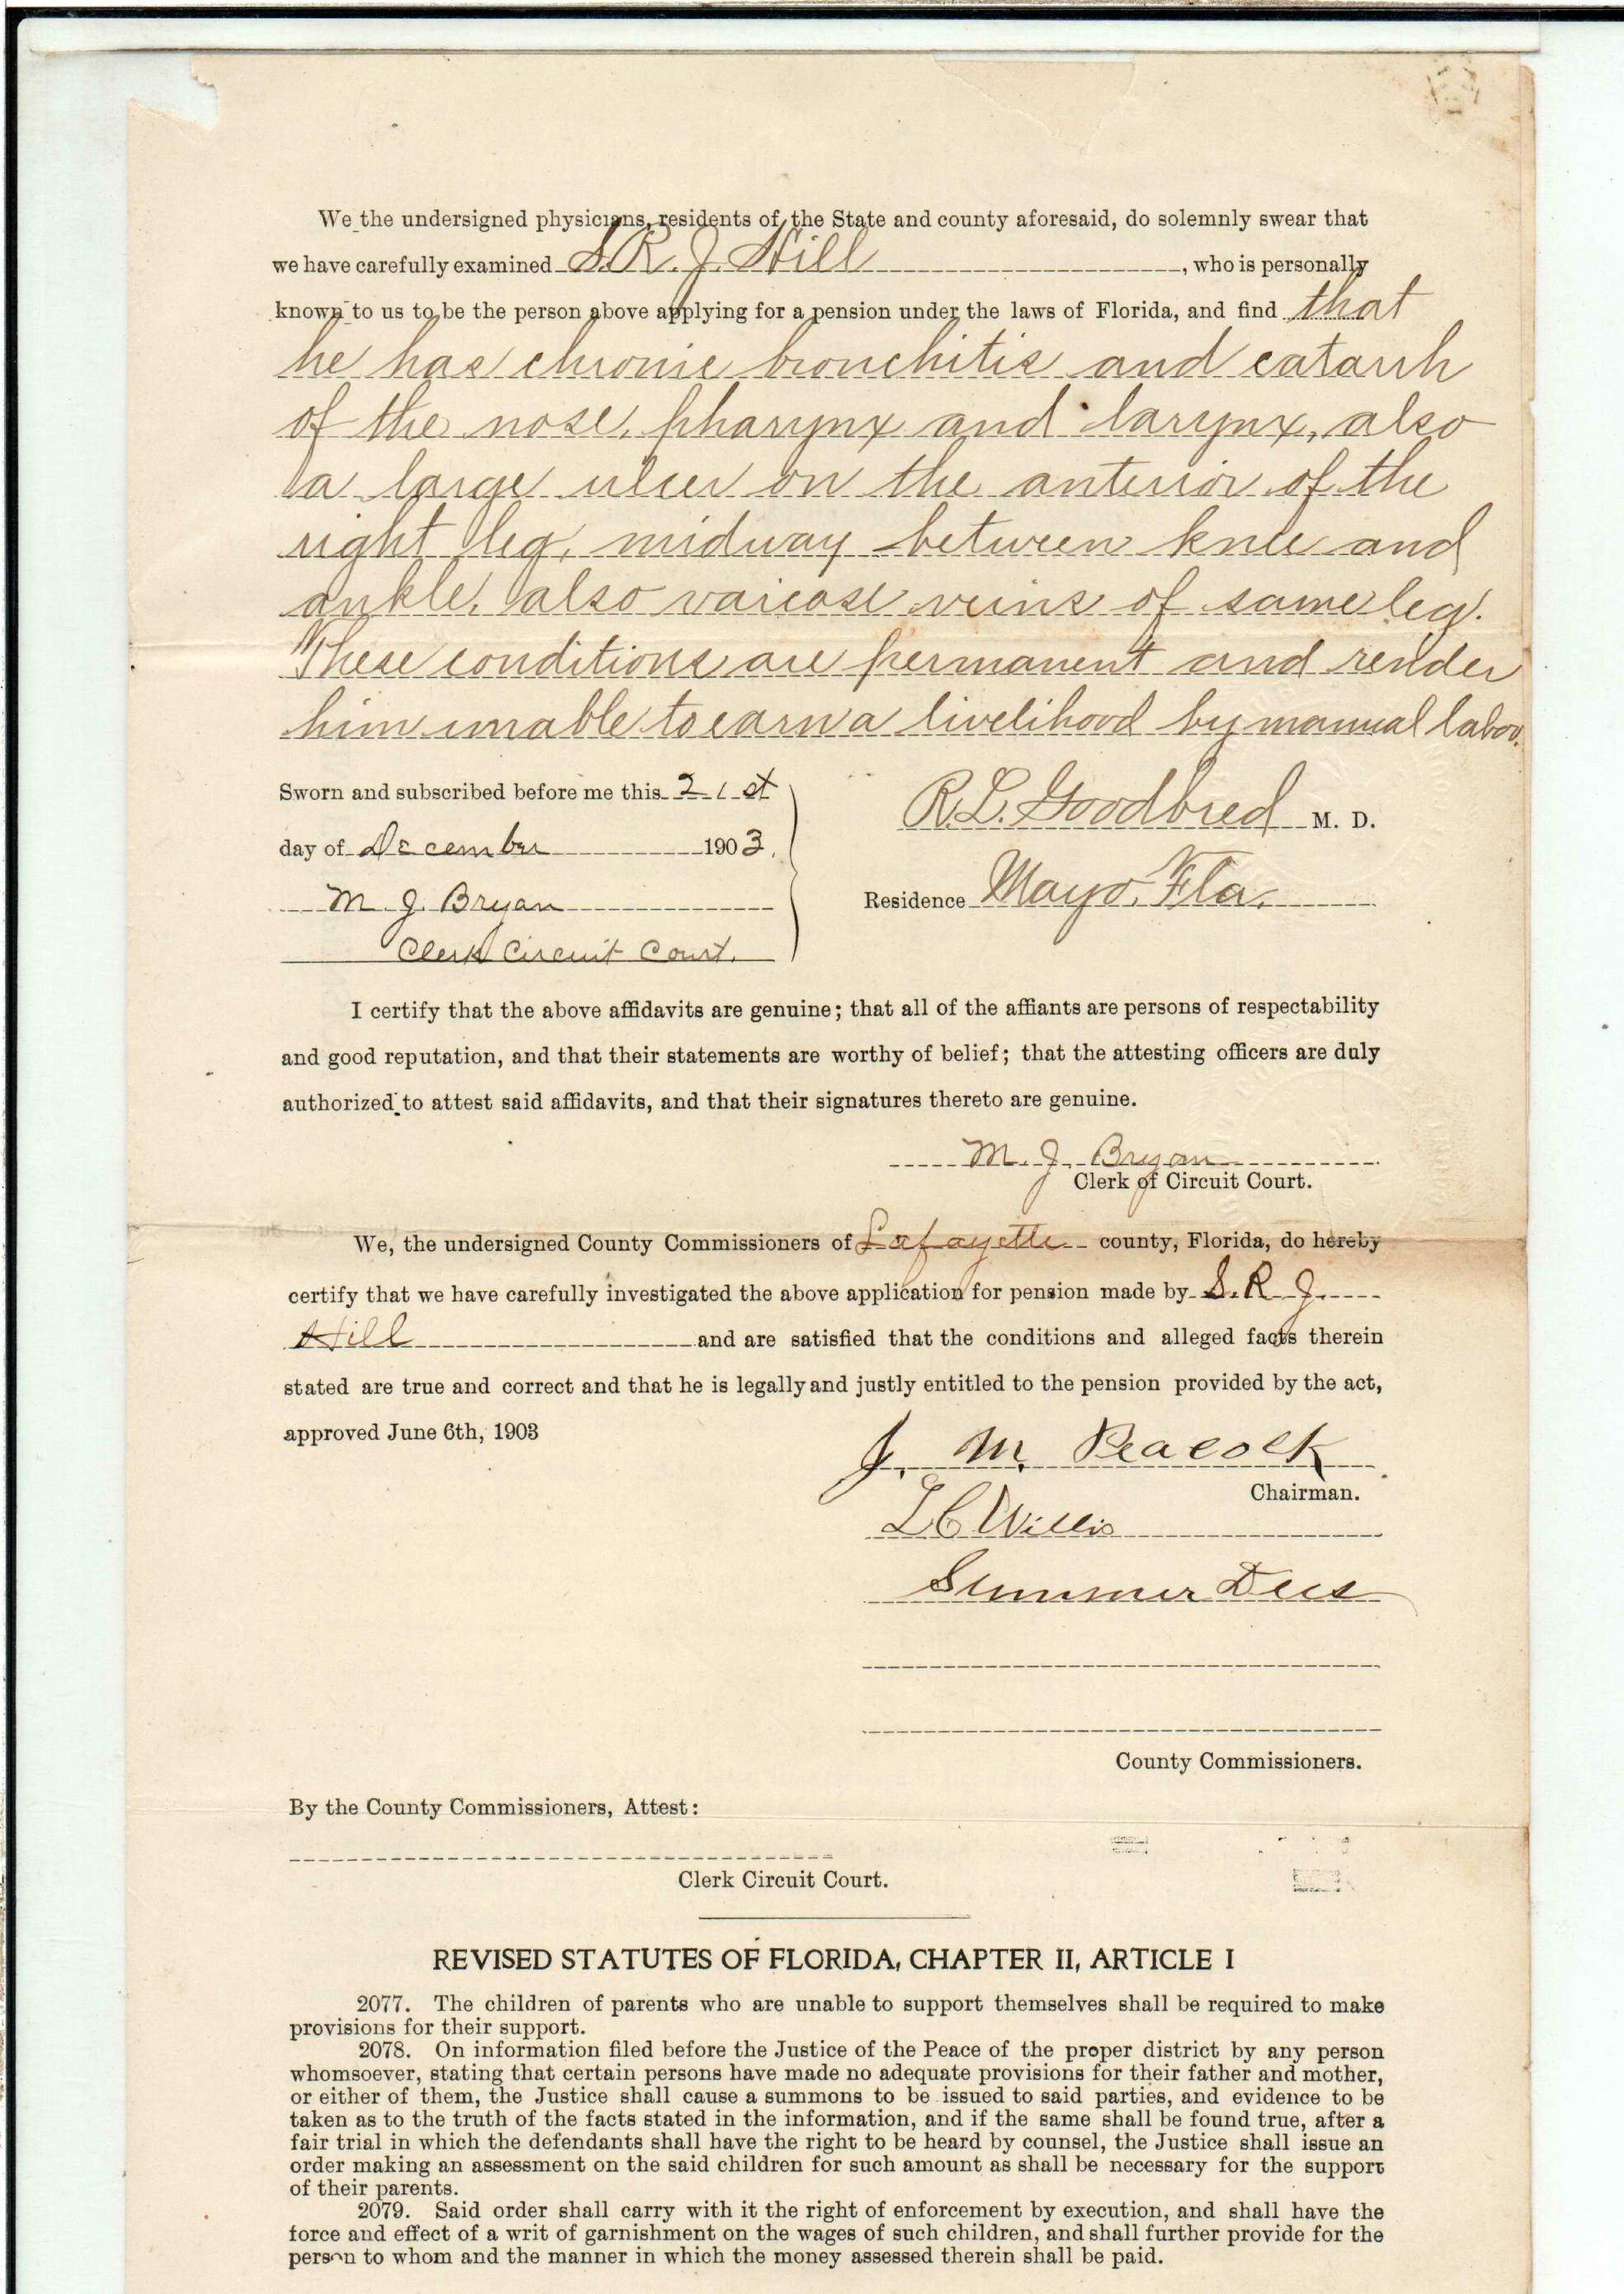 We the undersigned physicians, residents of the State and county aforesaid, do solemnly swear that
we have carefully examined S. R. J. Hill, who is personally
known to us to be the person above applying for a pension under the laws of Florida, and find that
he has chronic bronchitis and catarrh
of the nose, pharynx and larynx, also
a large ulcer on the anterior of the
right leg, midway between knee and
ankle, also varicose veins of same leg.
These conditions are permanent and render
him unable to earn a livelihood by manual labor.
Sworn and subscribed before me this 21st
day of December 1903.
M. J. Bryan
Clerk Circuit Court.
R. L. Goodbred M. D.
Residence Mayo, Fla.
I certify that the above affidavits are genuine; that all of the affiants are persons of respectability
and good reputation, and that their statements are worthy of belief; that the attesting officers are duly
authorized to attest said affidavits, and that their signatures thereto are genuine.
M. J. Bryan
Clerk of Circuit Court.
We, the undersigned County Commissioners of Lafayette county, Florida, do hereby
certify that we have carefully investigated the above application for pension made by S. R. J.
Hill and are satisfied that the conditions and alleged facts therein
stated are true and correct and that he is legally and justly entitled to the pension provided by the act,
approved June 6th, 1903
J. M. Peacock
Chairman.
L C Willis
Summer Dees
County Commissioners.
By the County Commissioners, Attest:
Clerk Circuit Court.
REVISED STATUTES OF FLORIDA, CHAPTER II, ARTICLE I
2077. The children of parents who are unable to support themselves shall be required to make
provisions for their support.
2078. On information filed before the Justice of the Peace of the proper district by any person
whomsoever, stating that certain persons have made no adequate provisions for their father and mother,
or either of them, the Justice shall cause a summons to be issued to said parties, and evidence to be
taken as to the truth of the facts stated in the information, and if the same shall be found true, after a
fair trial in which the defendants shall have the right to be heard by counsel, the Justice shall issue an
order making an assessment on the said children for such amount as shall be necessary for the support
of their parents.
2079. Said order shall carry with it the right of enforcement by execution, and shall have the
force and effect of a writ of garnishment on the wages of such children, and shall further provide for the
person to whom and the manner in which the money assessed therein shall be paid.